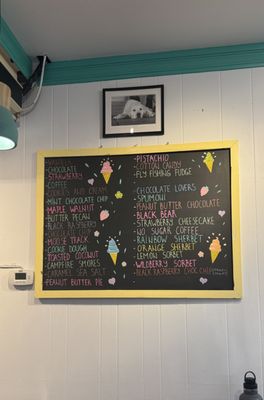 CHOCOLATE
STRAWBERRY
COFFEE
COOKIES AND CREAM
MINT CHOCOLATE CHIP
MAPLE WALNUT
BUTTER PECAN
BLACK RASPBERRY
CHOCOLATE CHIP
MOOSE TRACK
COOKIE DOUGH
TOASTED COCONUT
CAMPFIRE SMORES
CARAMEL SEA SALT
PEANUT BUTTER PIE
PISTACHIO
COTTON CANDY
FLY FISHING FUDGE
CHOCOLATE LOVERS
SPUMONI
PEANUT BUTTER CHOCOLATE
BLACK BEAR
STRAWBERRY CHEESECAKE
NO SUGAR COFFEE
RAINBOW SHERBET
ORANGE SHERBET
LEMON SORBET
WILDBERRY SORBET
BLACK RASPBERRY CHOC CHIP